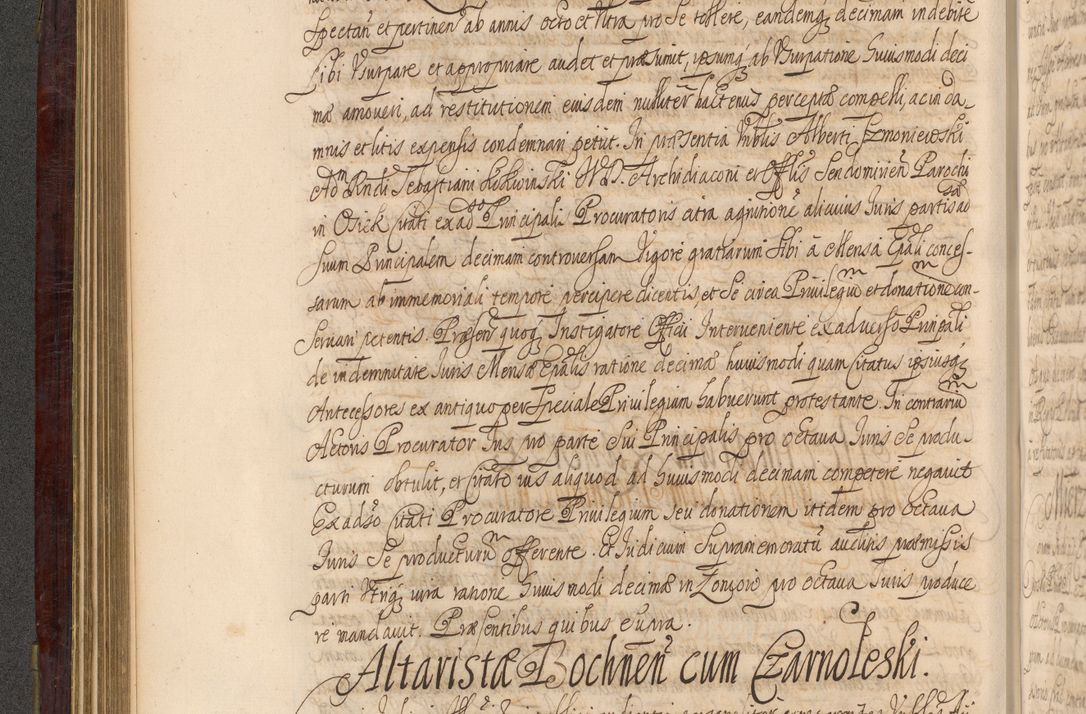 Spectan et pertinen ab annis octo et Vltra pro Se tollere, eandemq decimam indebite
Sibi Vsurpare et appropriare audet et præsumit, ipsumq ab Vsurpatione huiusmodi deci
mæ amoueri, ad restitutionem eiusdem nulliter hactenus perceptæ compelli, ac in da
mnis et litis expensis condemnari petijt. In præsentia Nobilis Alberti
Adm Rndi Sebastiani Kokwinski V.I.D. Archidiaconi et Offlis Sendomirien Parochi
in Osiek citati ex ad Principali Procuratoris citra agnitione alicuius Iuris partis ad
Suum Principalem decimam controuersam Vigore gratiarum Sibi à Mensa Epali conces
sarum ab immemoriali tempore percipere dicentis, et Se circa Priuilegiu et donatione con
Seruari petentis. Præsen quoq Instigatore Officij Interueniente ex aduerso Prinpali
de indemnitate Iuris Mensæ Epalis ratione decimæ huiusmodi quam Citatus ipsiusq
Antecessores ex antiquo per Speciale Priuilegium habuerunt protestante. In contrariu
Actoris Procurator Ius pro parte Sui Principalis pro octaua Iuris Se produ
cturum obtulit, et Citato ius aliquod ad huiusmodi decimam competere negauit
Ex aduso Citati Procuratore Priuilegium Seu donationem itidem pro octaua
Iuris Se producturu offerente. Et Iudicium Supramemoratu auditis præmissis
parti Vtriq iura ratione huiusmodi decimæ in Zoncio pro octaua Iuris produce
re mandauit. Præsentibus quibus Supra.
Altaristæ Bochnen cum Czarnoleski.